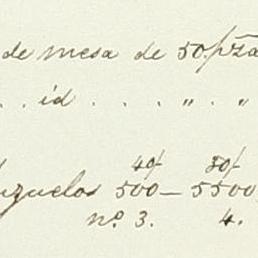 de mesa de 50. pza
.. id .... " . "
zuelos 500 — 5500
nº. 3. 4.